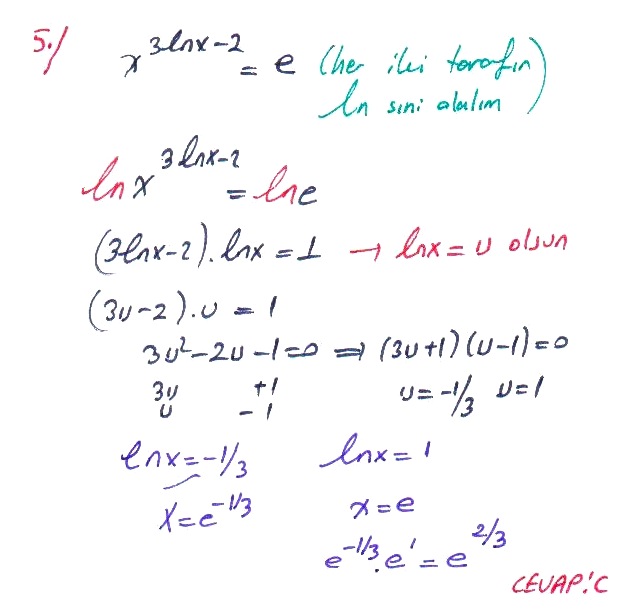 5./ x^{3lnx-2} = e (her iki tarafın
ln sini alalım)
ln x^{3lnx-2} = lne
(3lnx-2).lnx = 1 → lnx = u olsun
(3u-2).u = 1
3u²-2u-1=0 ⇒ (3u+1)(u-1)=0
3u +1 u=-1/3 u=1
u -1
lnx=-1/3 lnx=1
x=e^{-1/3} x=e
e^{-1/3}.e¹=e^{2/3}
CEVAP:C